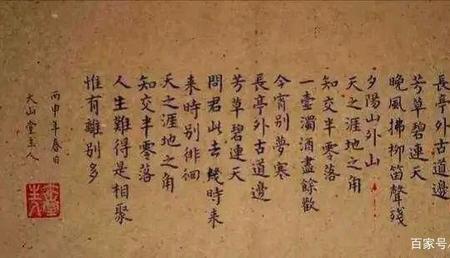 長亭外古道邊
芳草碧連天
晚風拂柳笛聲殘
夕陽山外山
天之涯地之角
知交半零落
一壺濁酒盡餘歡
今宵别夢寒
長亭外古道邊
芳草碧連天
問君此去幾時来
来時别徘徊
天之涯地之角
知交半零落
人生難得是相聚
惟有離别多
丙申年春日
大山堂主人
百家号/